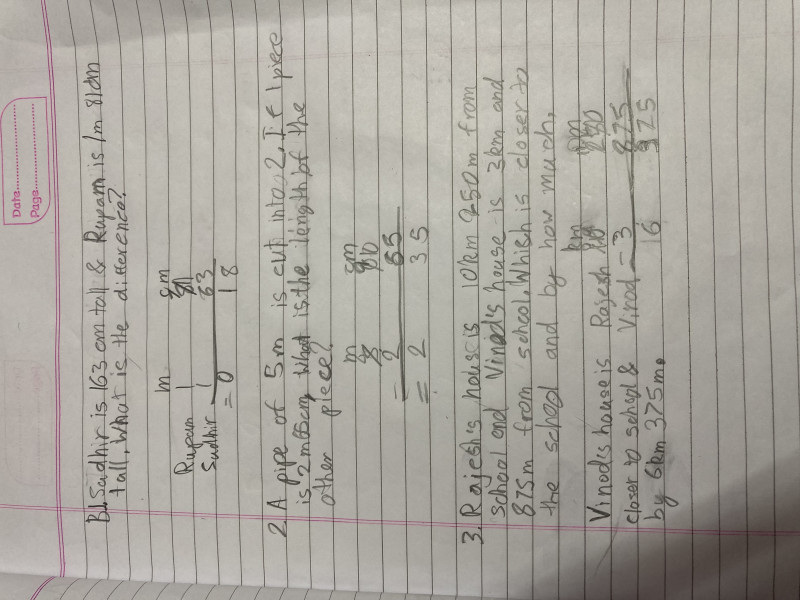 Date................
Page................
B1. Sudhir is 163 cm tall & Rupam is 1m 81dm
tall, What is the difference?
m cm
Rupam 1 81
Sudhir 1 63
= 0 18
2. A pipe of 5m is cut into 2, If 1 piece
is 2m65cm, What is the length of the
other piece?
m cm
- 2 65
= 2 35
3. Rajesh's house is 10km 250m from
school and Vinod's house is 3km and
875m from school. Which is closer to
the school and by how much,
km
Vinod's house is Rajesh
closer to school & Vinod - 3 875
by 6km 375m. 6 375